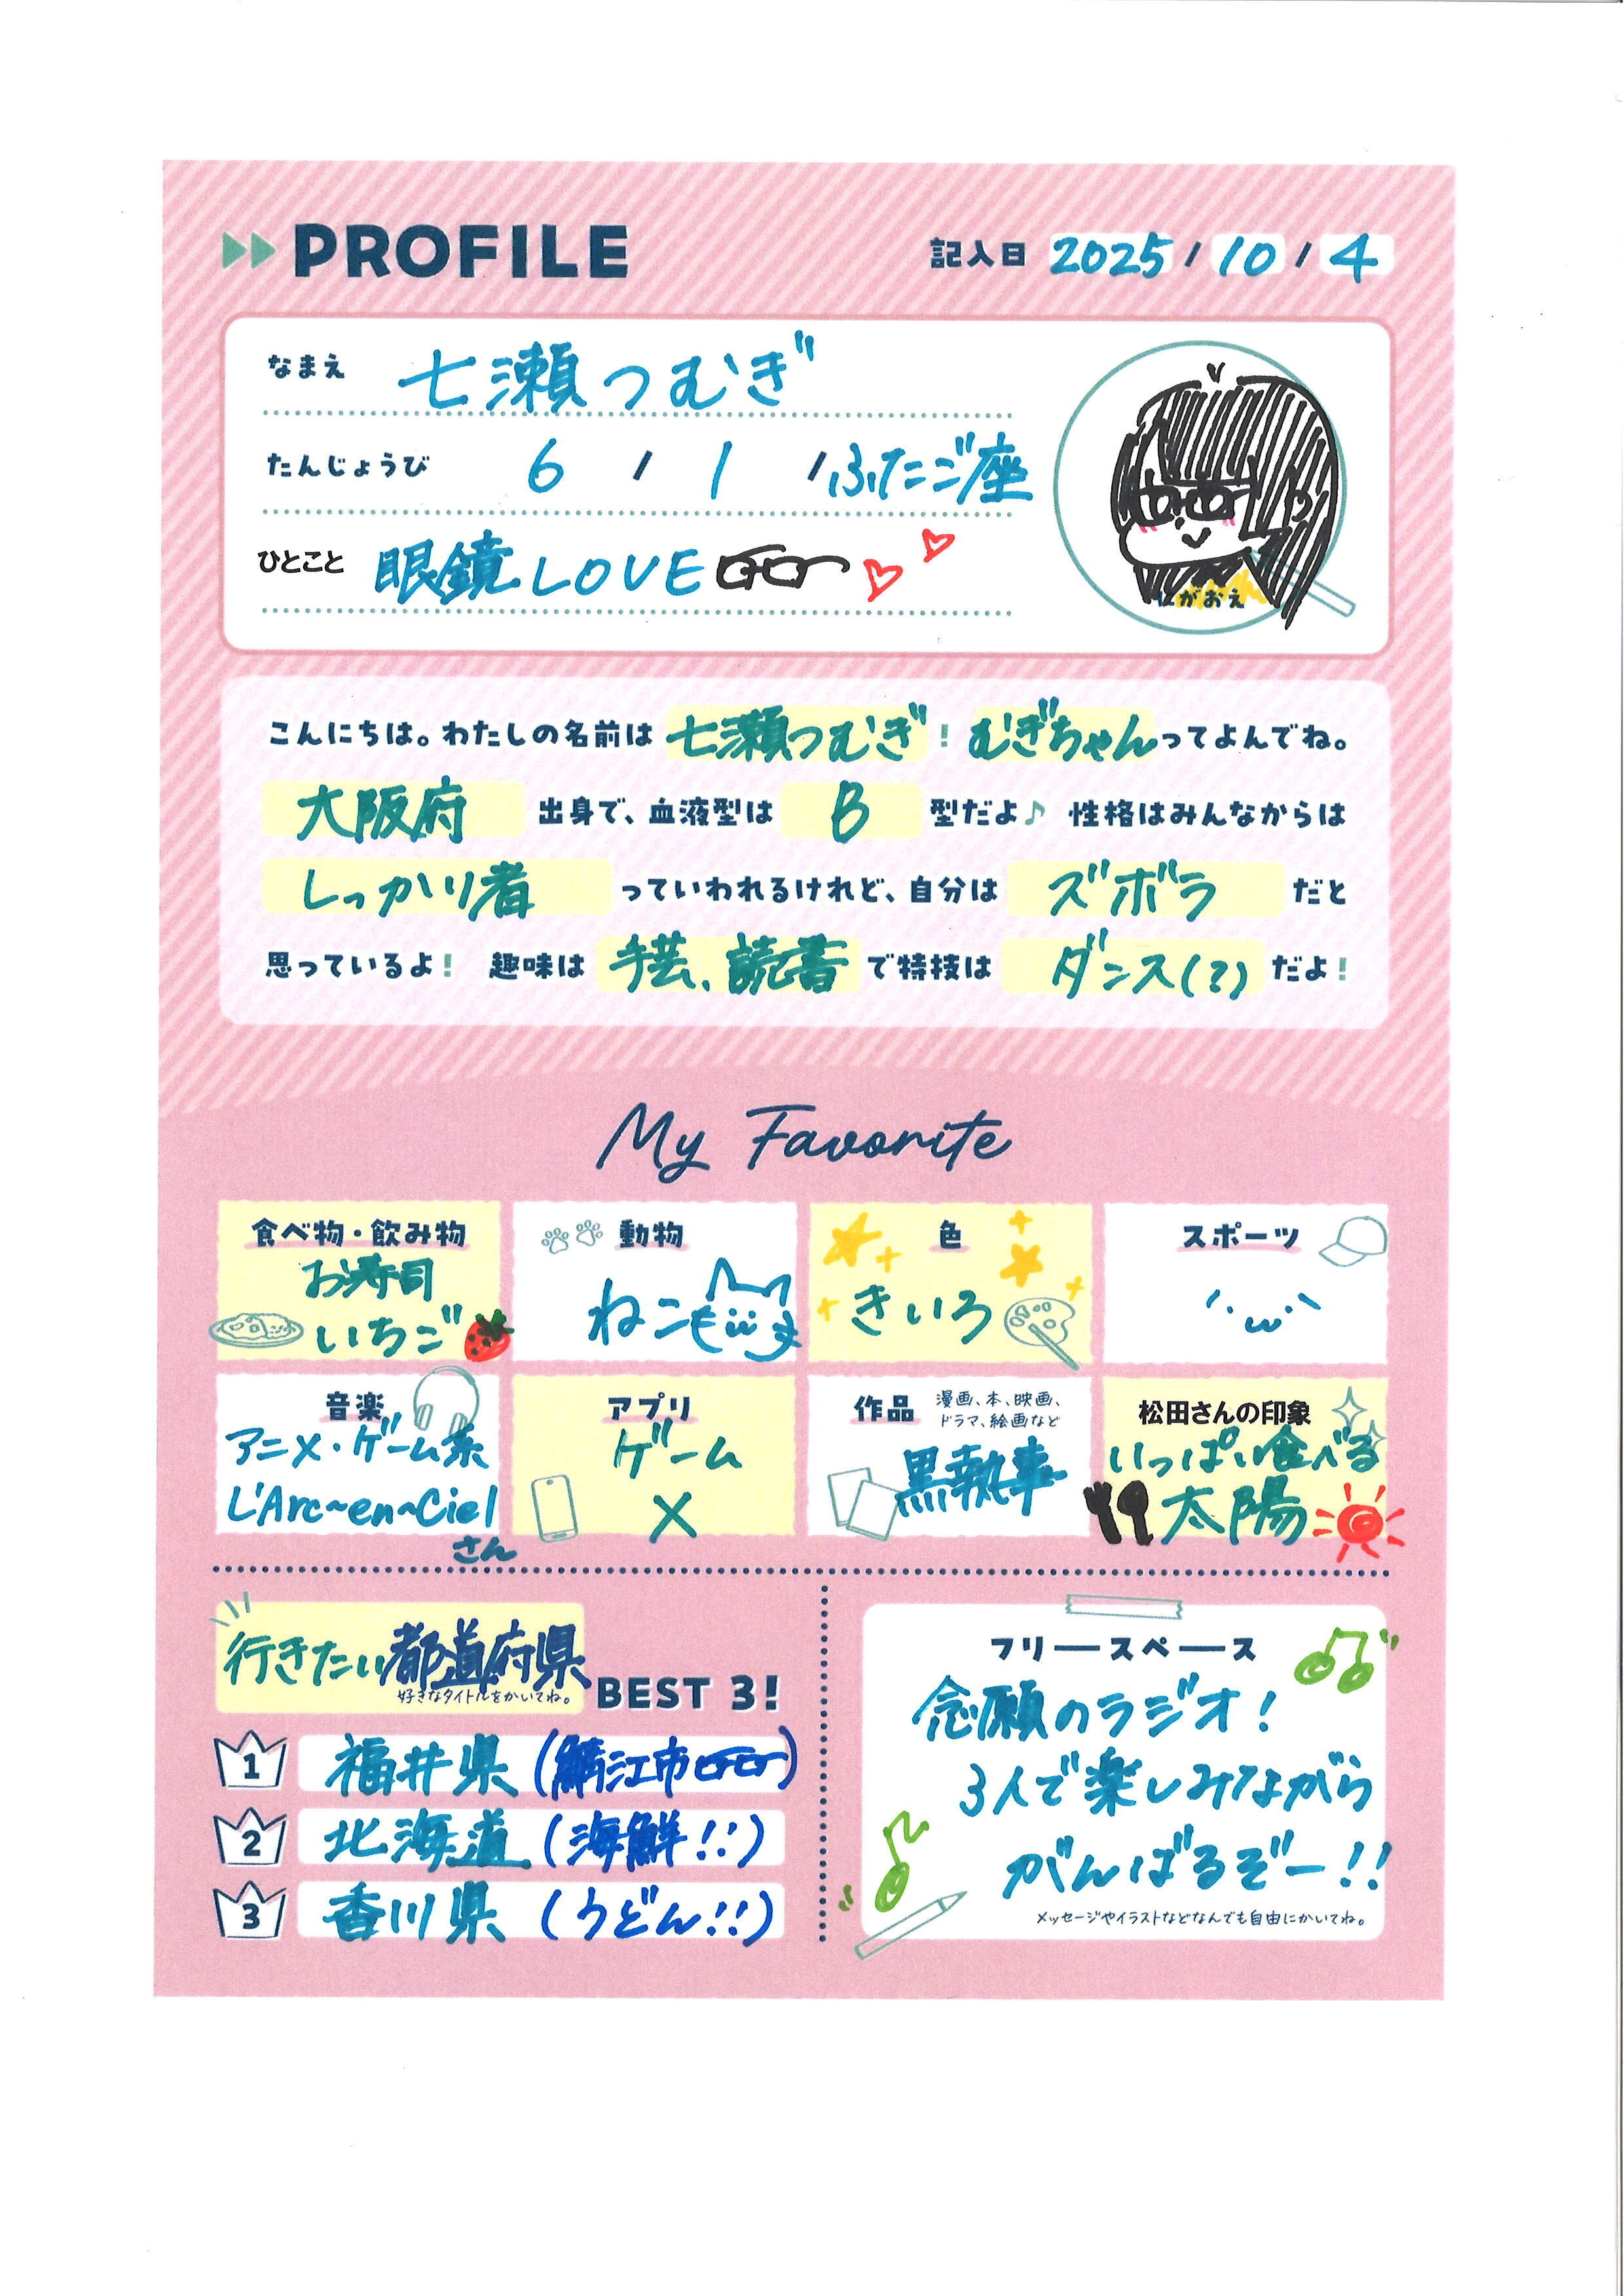 PROFILE
記入日 2025 / 10 / 4
なまえ 七瀬つむぎ
たんじょうび 6 / 1 / ふたご座
ひとこと 眼鏡LOVE
にがおえ
こんにちは。わたしの名前は 七瀬つむぎ ! むぎちゃん ってよんでね。
大阪府 出身で、血液型は B 型だよ♪ 性格はみんなからは
しっかり者 っていわれるけれど、自分は ズボラ だと
思っているよ! 趣味は 手芸、読書 で特技は ダンス(?) だよ!
My Favorite
食べ物・飲み物
お寿司
いちご
動物
ねこ
色
きいろ
スポーツ
´·ω·`
音楽
アニメ・ゲーム系
L'Arc~en~Ciel
さん
アプリ
ゲーム
X
作品 漫画、本、映画、
ドラマ、絵画など
黒執事
松田さんの印象
いっぱい食べる
太陽
行きたい都道府県
好きなタイトルをかいてね。
BEST 3!
1 福井県(鯖江市)
2 北海道(海鮮!!)
3 香川県(うどん!!)
フリースペース
念願のラジオ!
3人で楽しみながら
がんばるぞー!!
メッセージやイラストなどなんでも自由にかいてね。